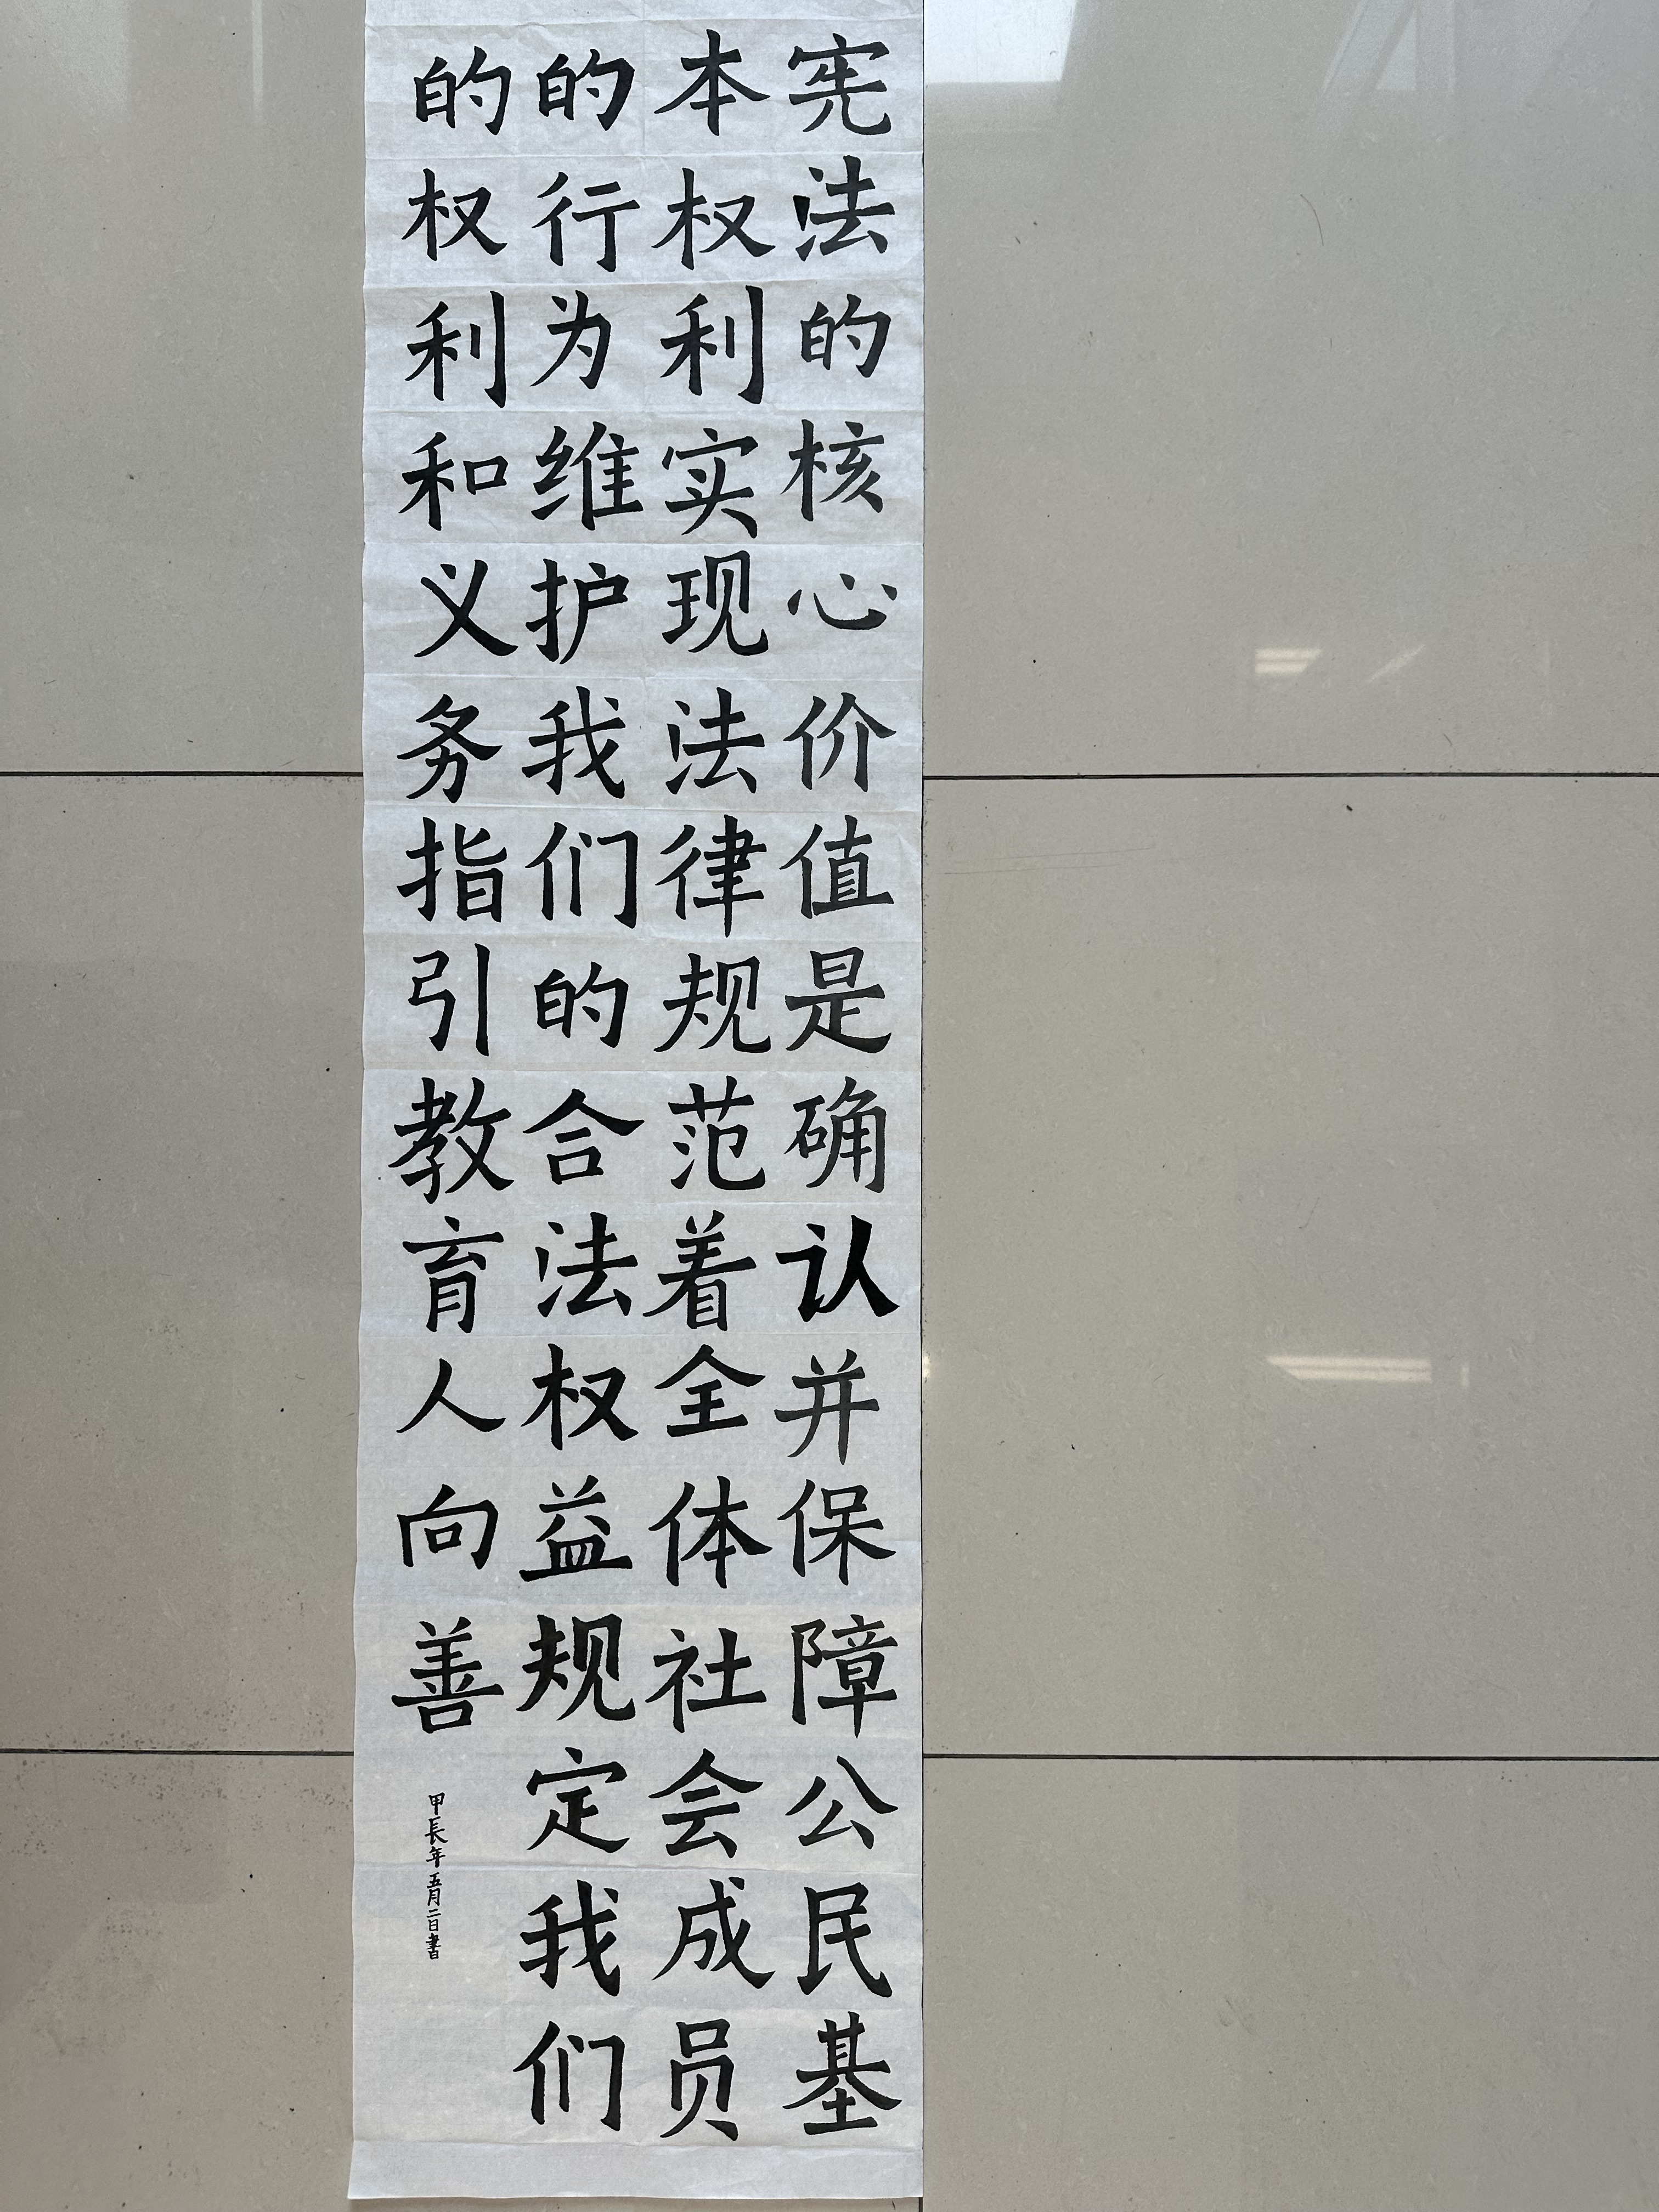 宪法的核心价值是确认并保障公民基
本权利实现法律规范着全体社会成员
的行为维护我们的合法权益规定我们
的权利和义务指引教育人向善
甲長年五月二日書